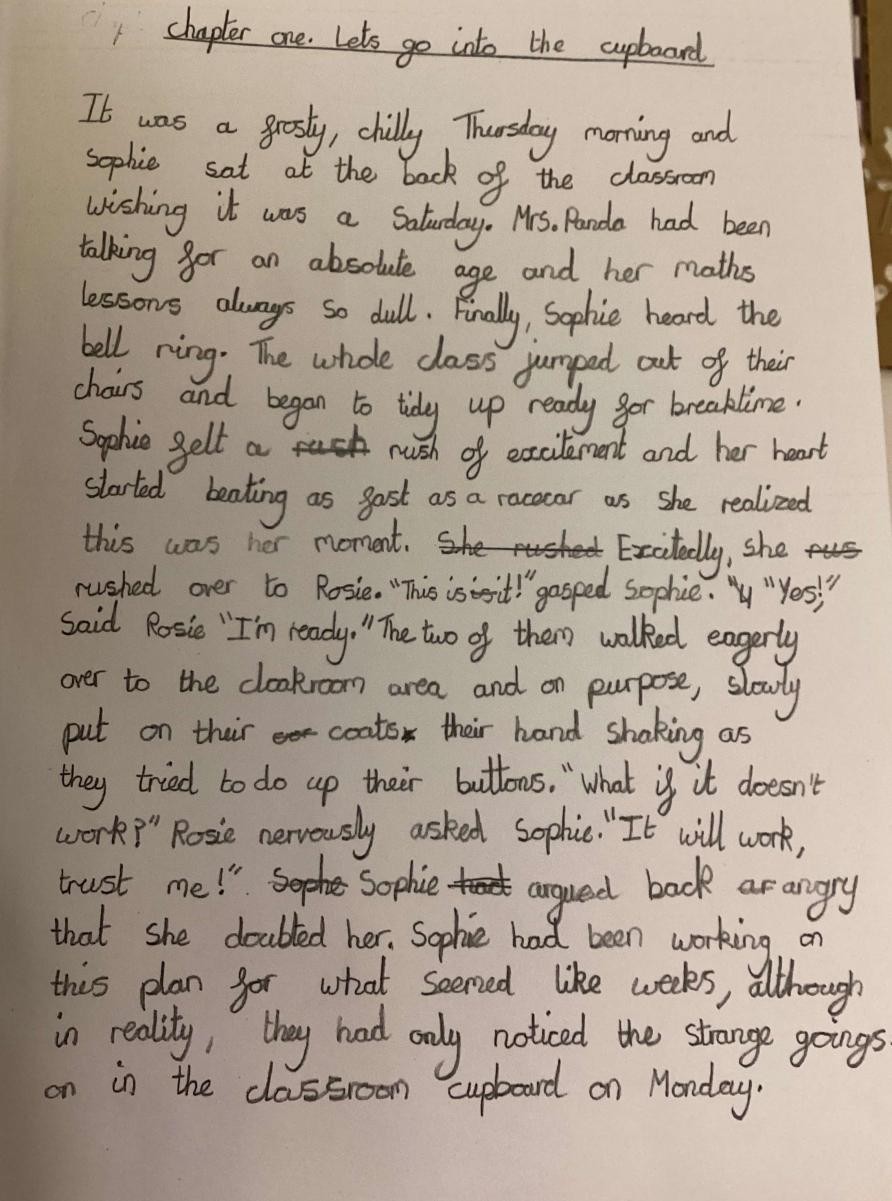 chapter one. Lets go into the cupboard
It was a frosty, chilly Thursday morning and
Sophie sat at the back of the classroom
wishing it was a Saturday. Mrs. Panda had been
talking for an absolute age and her maths
lessons always so dull. Finally, Sophie heard the
bell ring. The whole class jumped out of their
chairs and began to tidy up ready for breaktime.
Sophie felt a rush rush of excitement and her heart
started beating as fast as a racecar as she realized
this was her moment. She rushed Excitedly, she rus
rushed over to Rosie. "This is is it!" gasped Sophie. "Y "Yes!,"
Said Rosie "I'm ready." The two of them walked eagerly
over to the cloakroom area and on purpose, slowly
put on their cor coats, their hand shaking as
they tried to do up their buttons. "What if it doesn't
work?" Rosie nervously asked Sophie. "It will work,
trust me!". Sophe Sophie had argued back ar angry
that she doubted her. Sophie had been working on
this plan for what seemed like weeks, although
in reality, they had only noticed the strange goings
on in the classroom cupboard on Monday.